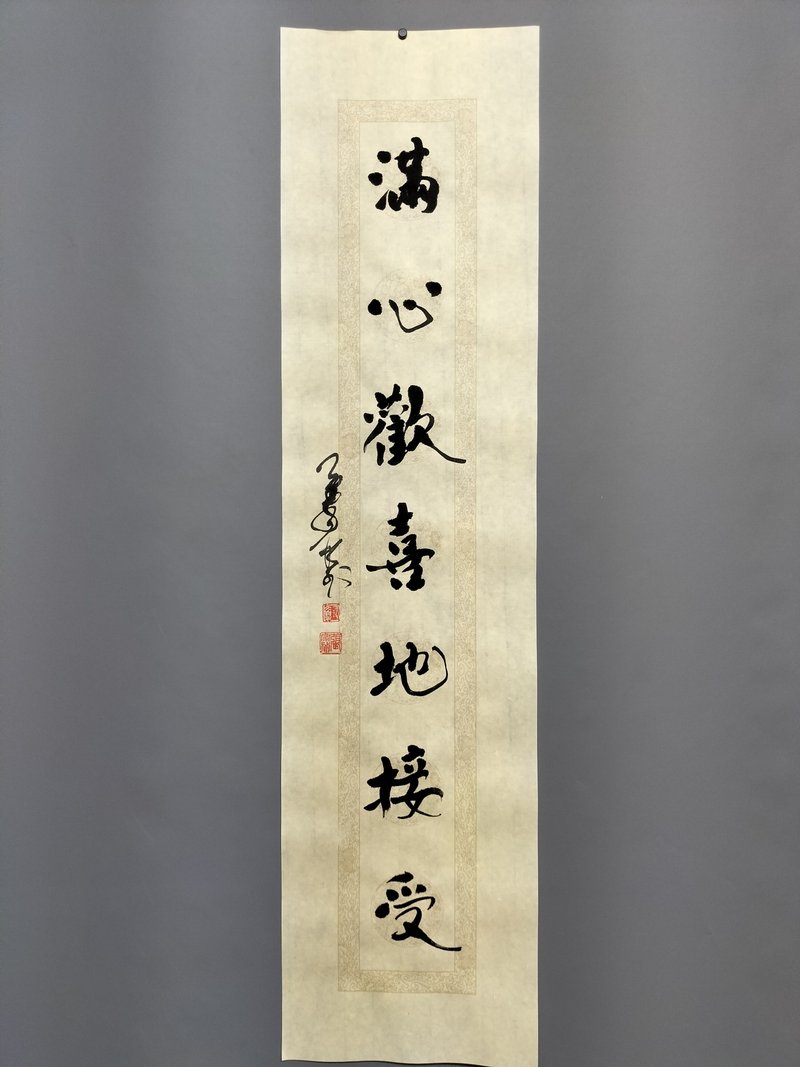 滿心歡喜地接受